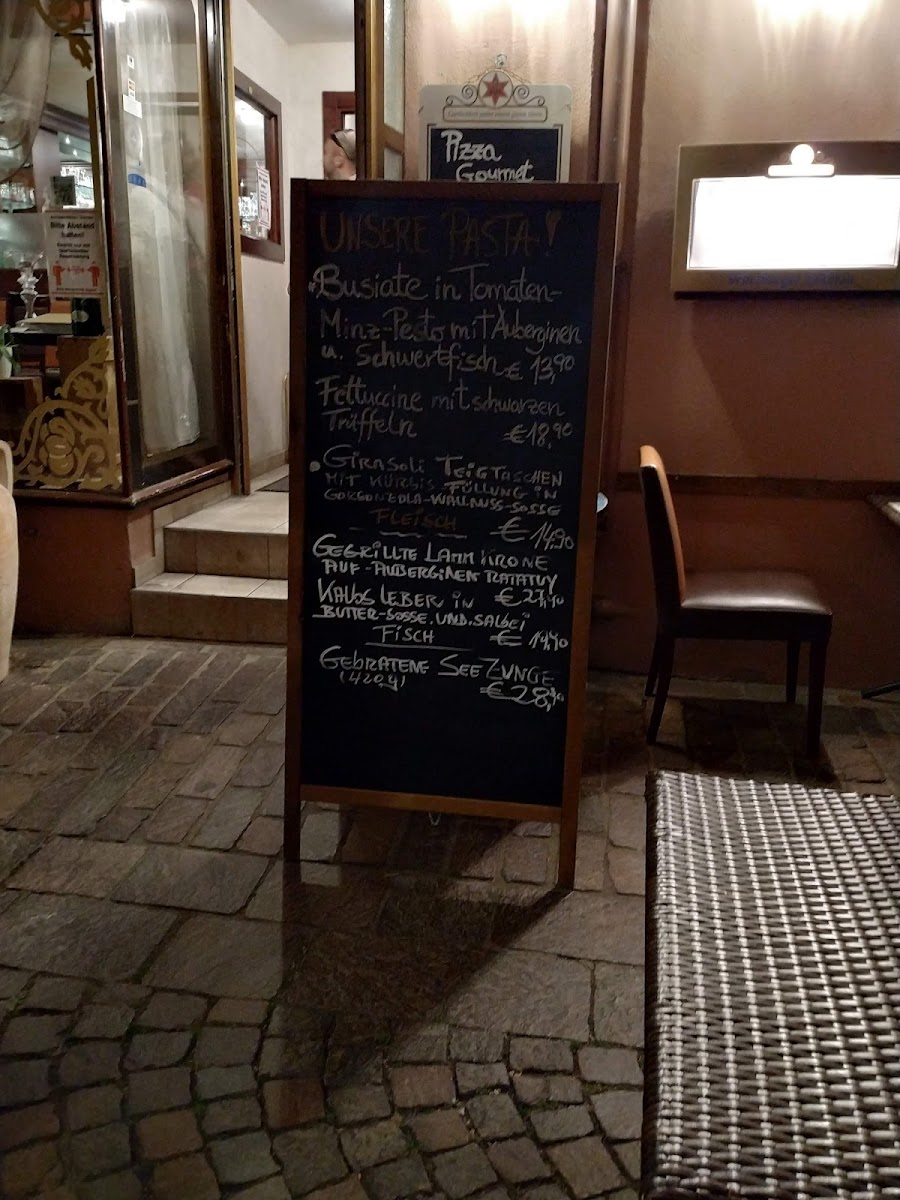 Pizza
Gourmet
Bitte Abstand
halten!
UNSERE PASTA!
Busiate in Tomaten-
Minz-Pesto mit Auberginen
u. Schwertfisch € 13,90
Fettuccine mit schwarzen
Trüffeln €18,90
GIRASOLI TEIGTASCHEN
MIT KÜRBIS-FÜLLUNG IN
GORGONZOLA-WALLNUSS-SOSSE
€ 14,90
FLEISCH
GEGRILLTE LAMM KRONE
AUF-AUBERGINEN RATATUY
€ 27,90
KALBS LEBER IN
BUTTER-SOSSE.UND.SALBEI
€ 19,90
FISCH
GEBRATENE SEEZUNGE
(420g) €28,90